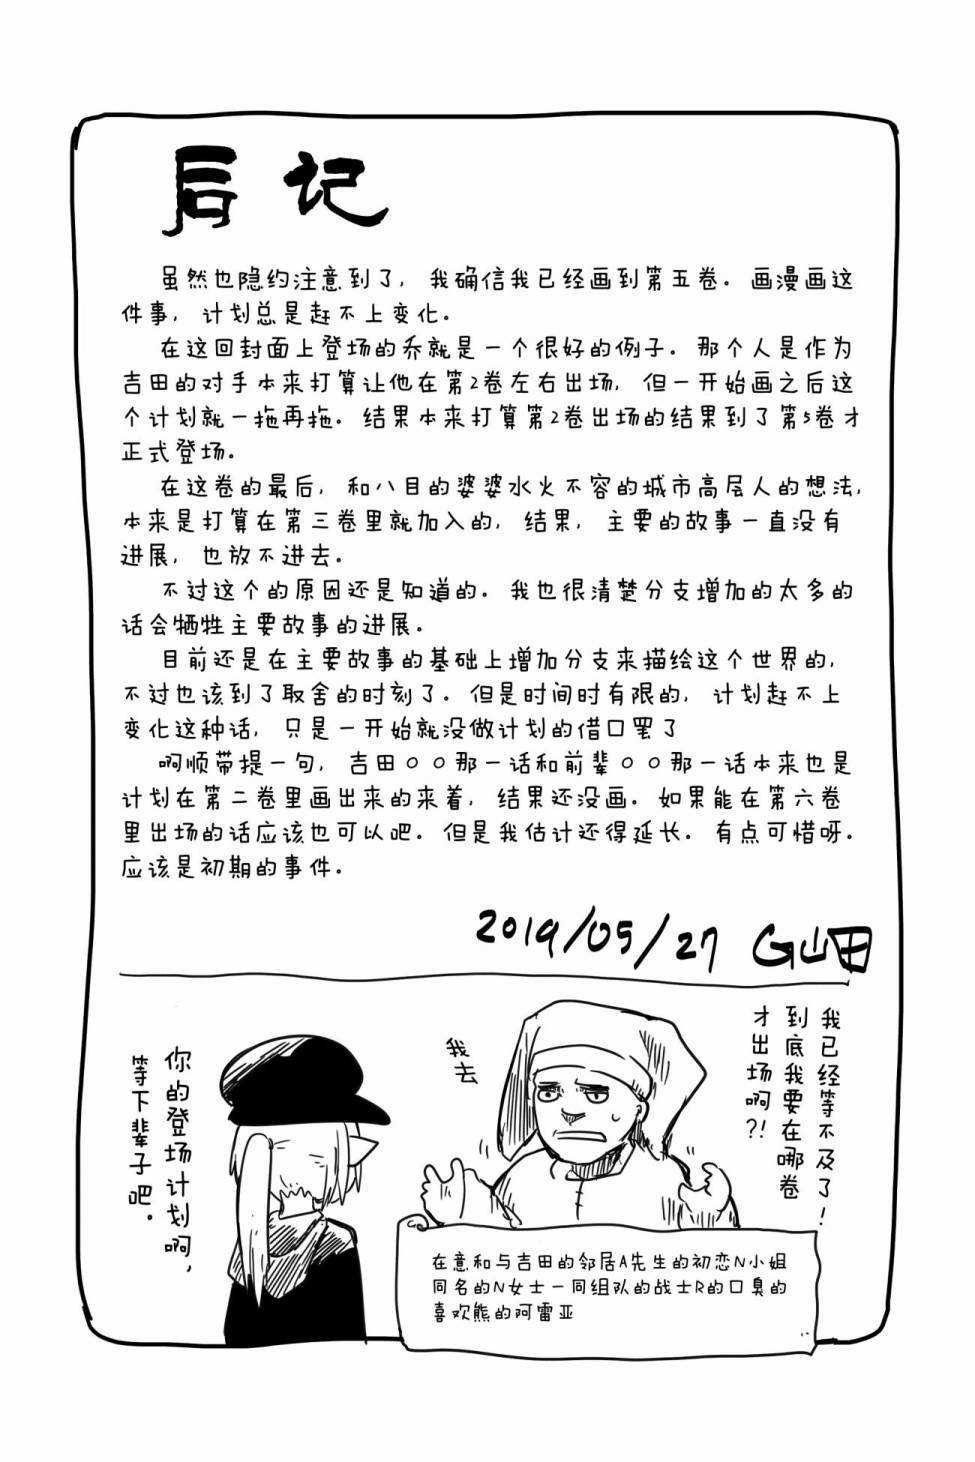 后记
虽然也隐约注意到了，我确信我已经画到第五卷。画漫画这
件事，计划总是赶不上变化。
在这回封面上登场的乔就是一个很好的例子。那个人是作为
吉田的对手本来打算让他在第2卷左右出场，但一开始画之后这
个计划就一拖再拖。结果本来打算第2卷出场的结果到了第5卷才
正式登场。
在这卷的最后，和八目的婆婆水火不容的城市高层人的想法，
本来是打算在第三卷里就加入的，结果，主要的故事一直没有
进展，也放不进去。
不过这个的原因还是知道的。我也很清楚分支增加的太多的
话会牺牲主要故事的进展。
目前还是在主要故事的基础上增加分支来描绘这个世界的，
不过也该到了取舍的时刻了。但是时间时有限的，计划赶不上
变化这种话，只是一开始就没做计划的借口罢了
啊顺带提一句，吉田〇〇那一话和前辈〇〇那一话本来也是
计划在第二卷里画出来的来着，结果还没画。如果能在第六卷
里出场的话应该也可以吧。但是我估计还得延长。有点可惜呀。
应该是初期的事件。
2019/05/27 G山田
我已经等不及了！
到底我要在哪卷
才出场啊?!
我去
你的登场计划啊，
等下辈子吧。
在意和与吉田的邻居A先生的初恋N小姐
同名的N女士一同组队的战士R的口臭的
喜欢熊的阿雷亚